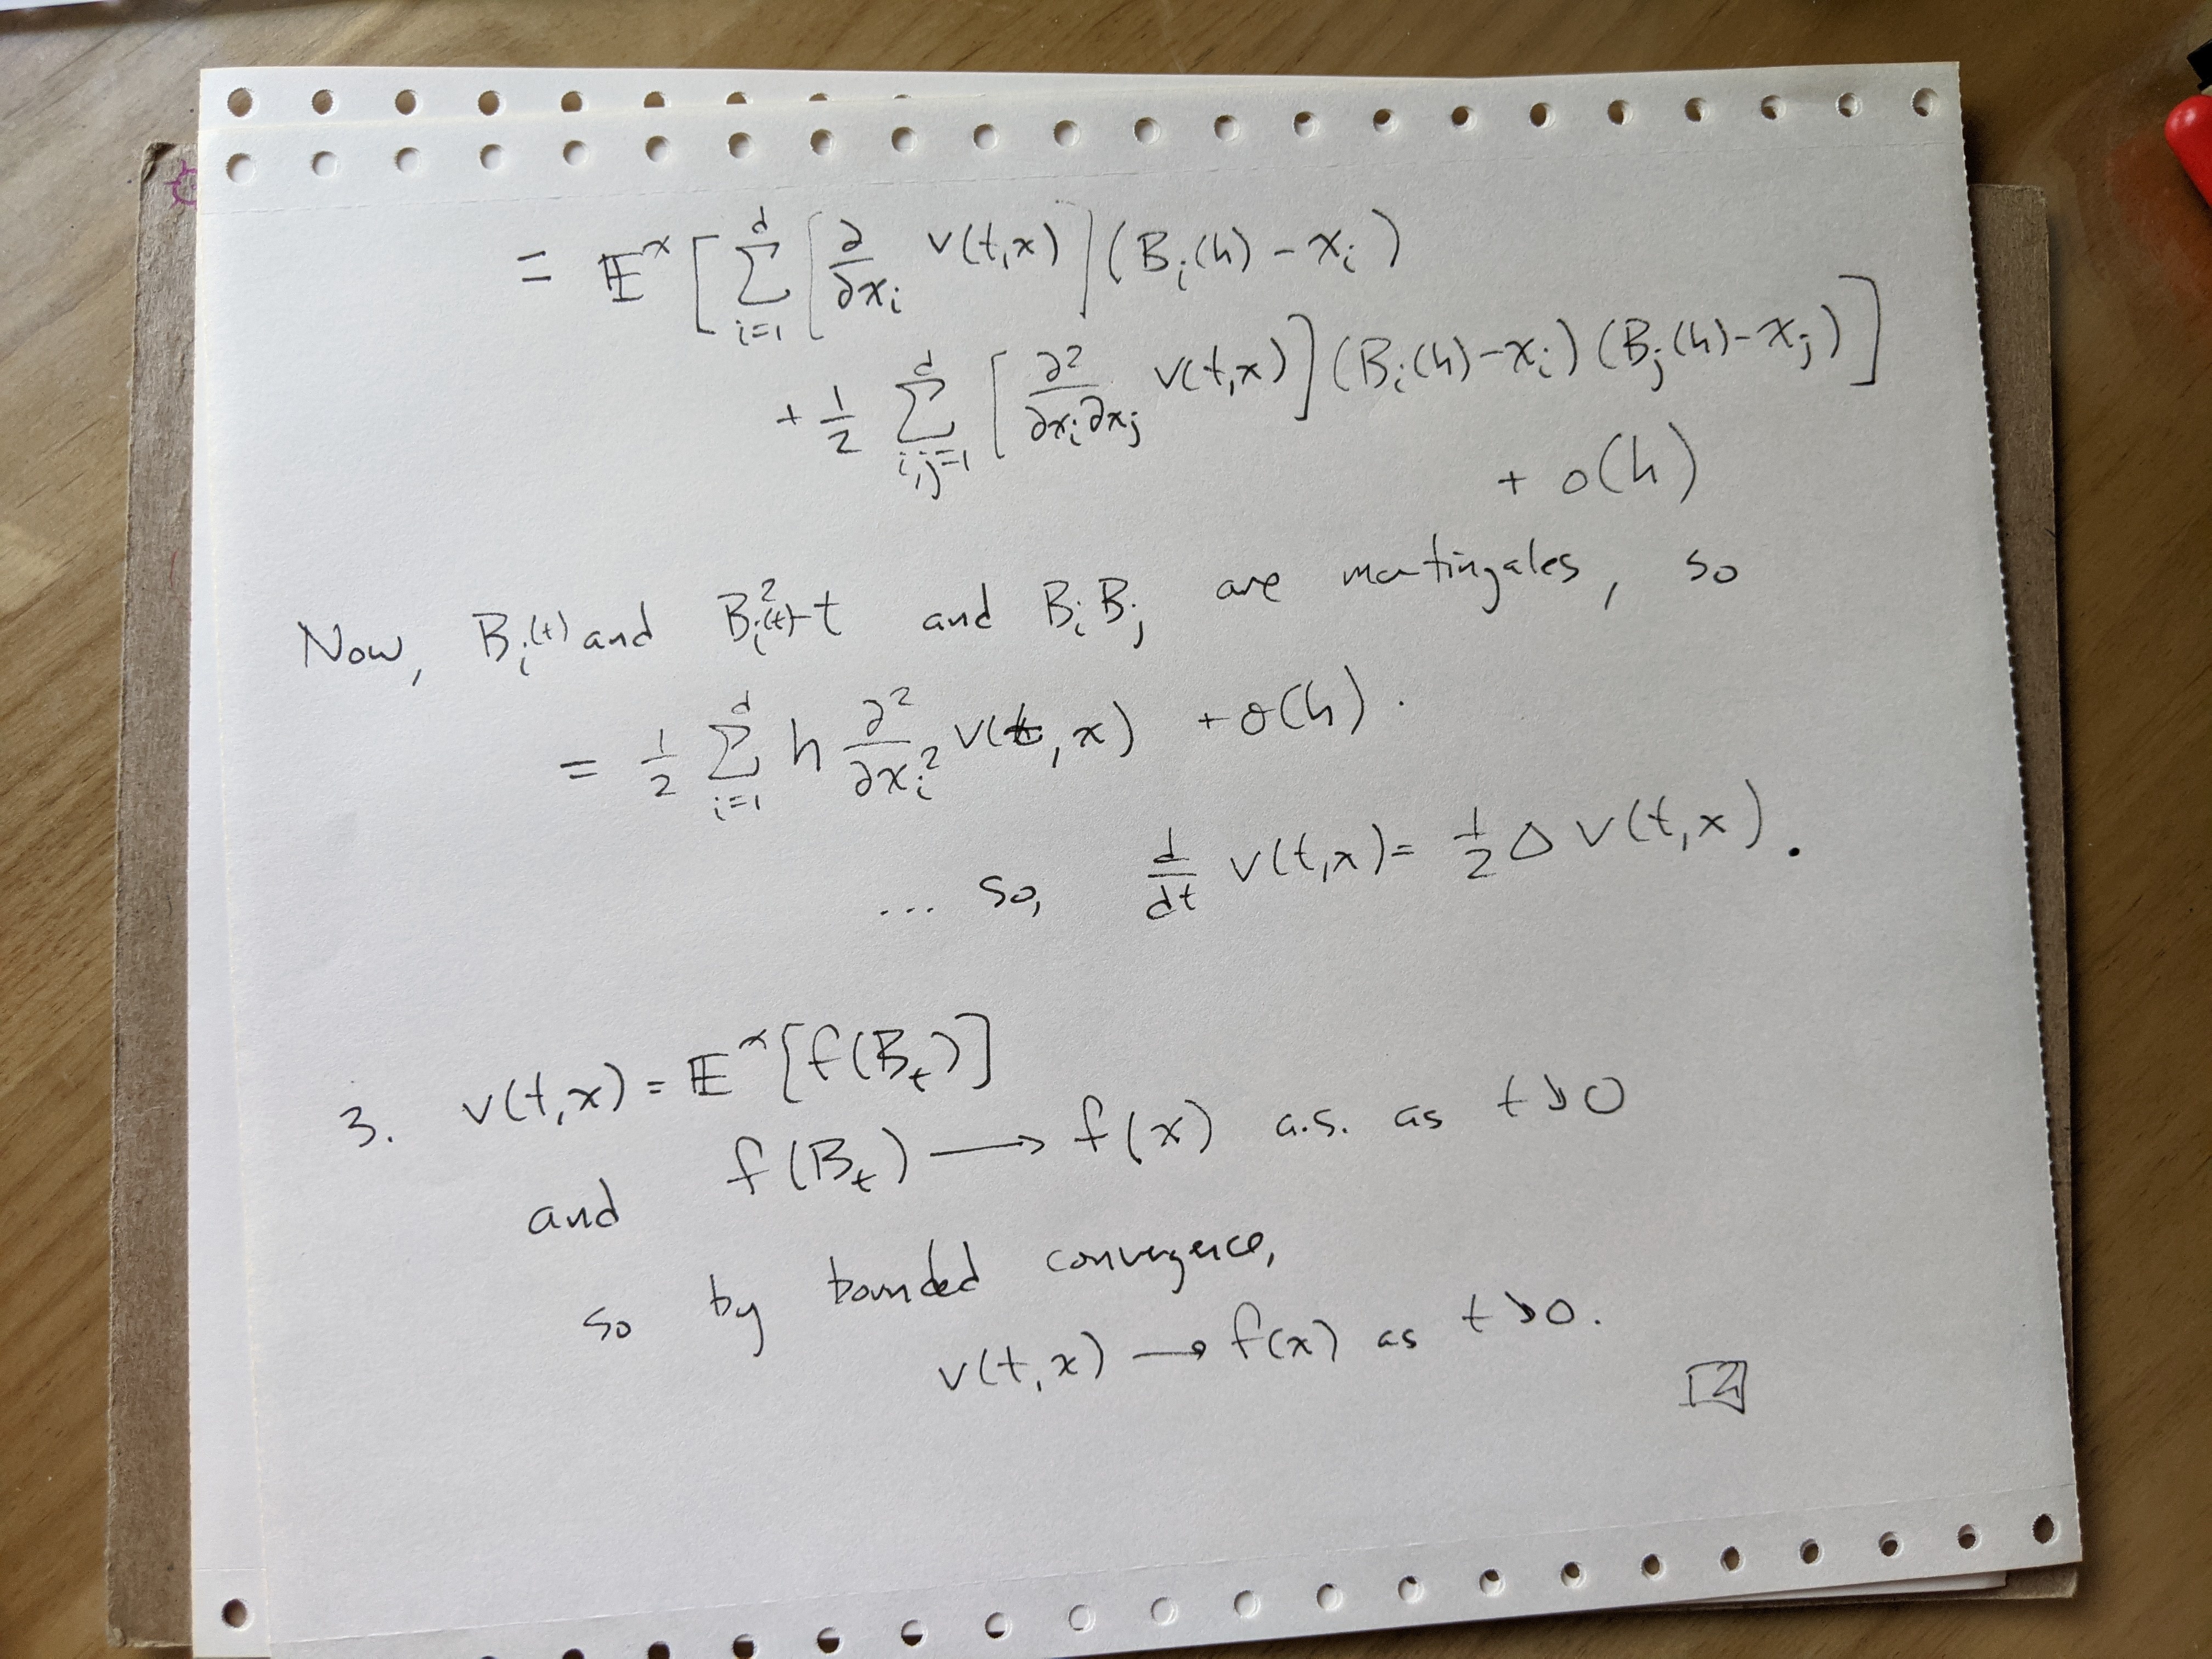 = 𝔼^x [ ∑_{i=1}^d [ ∂/∂x_i v(t,x) ] (B_i(h) - x_i)
+ 1/2 ∑_{i,j=1}^d [ ∂²/∂x_i∂x_j v(t,x) ] (B_i(h) - x_i) (B_j(h) - x_j) ]
+ o(h)
Now, B_i(t) and B_i²(t) - t and B_i B_j are martingales, so
= 1/2 ∑_{i=1}^d h ∂²/∂x_i² v(t, x) + o(h).
... so, d/dt v(t,x) = 1/2 Δ v(t,x).
3. v(t,x) = 𝔼^x [f(B_t)]
and f(B_t) ⟶ f(x) a.s. as t↘0
so by bounded convergence,
v(t,x) ⟶ f(x) as t↘0.